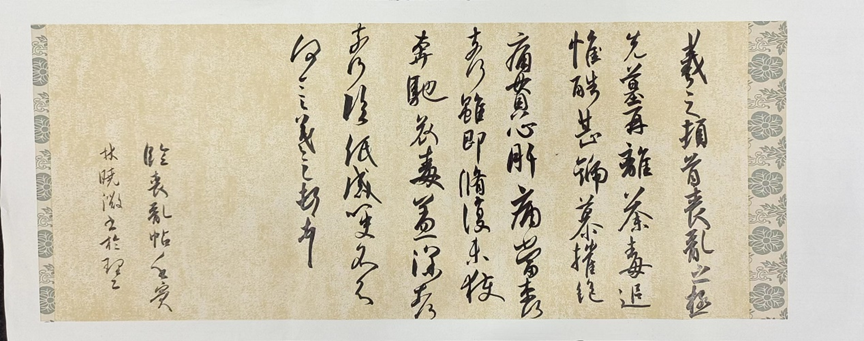 羲之頓首喪亂之極
先墓再離荼毒追
惟酷甚號慕摧絕
痛貫心肝痛當奈何
奈何雖即脩復未獲
奔馳哀毒益深奈何
奈何臨紙感哽不知
何言羲之頓首
臨喪亂帖壬寅
林曉澂書於